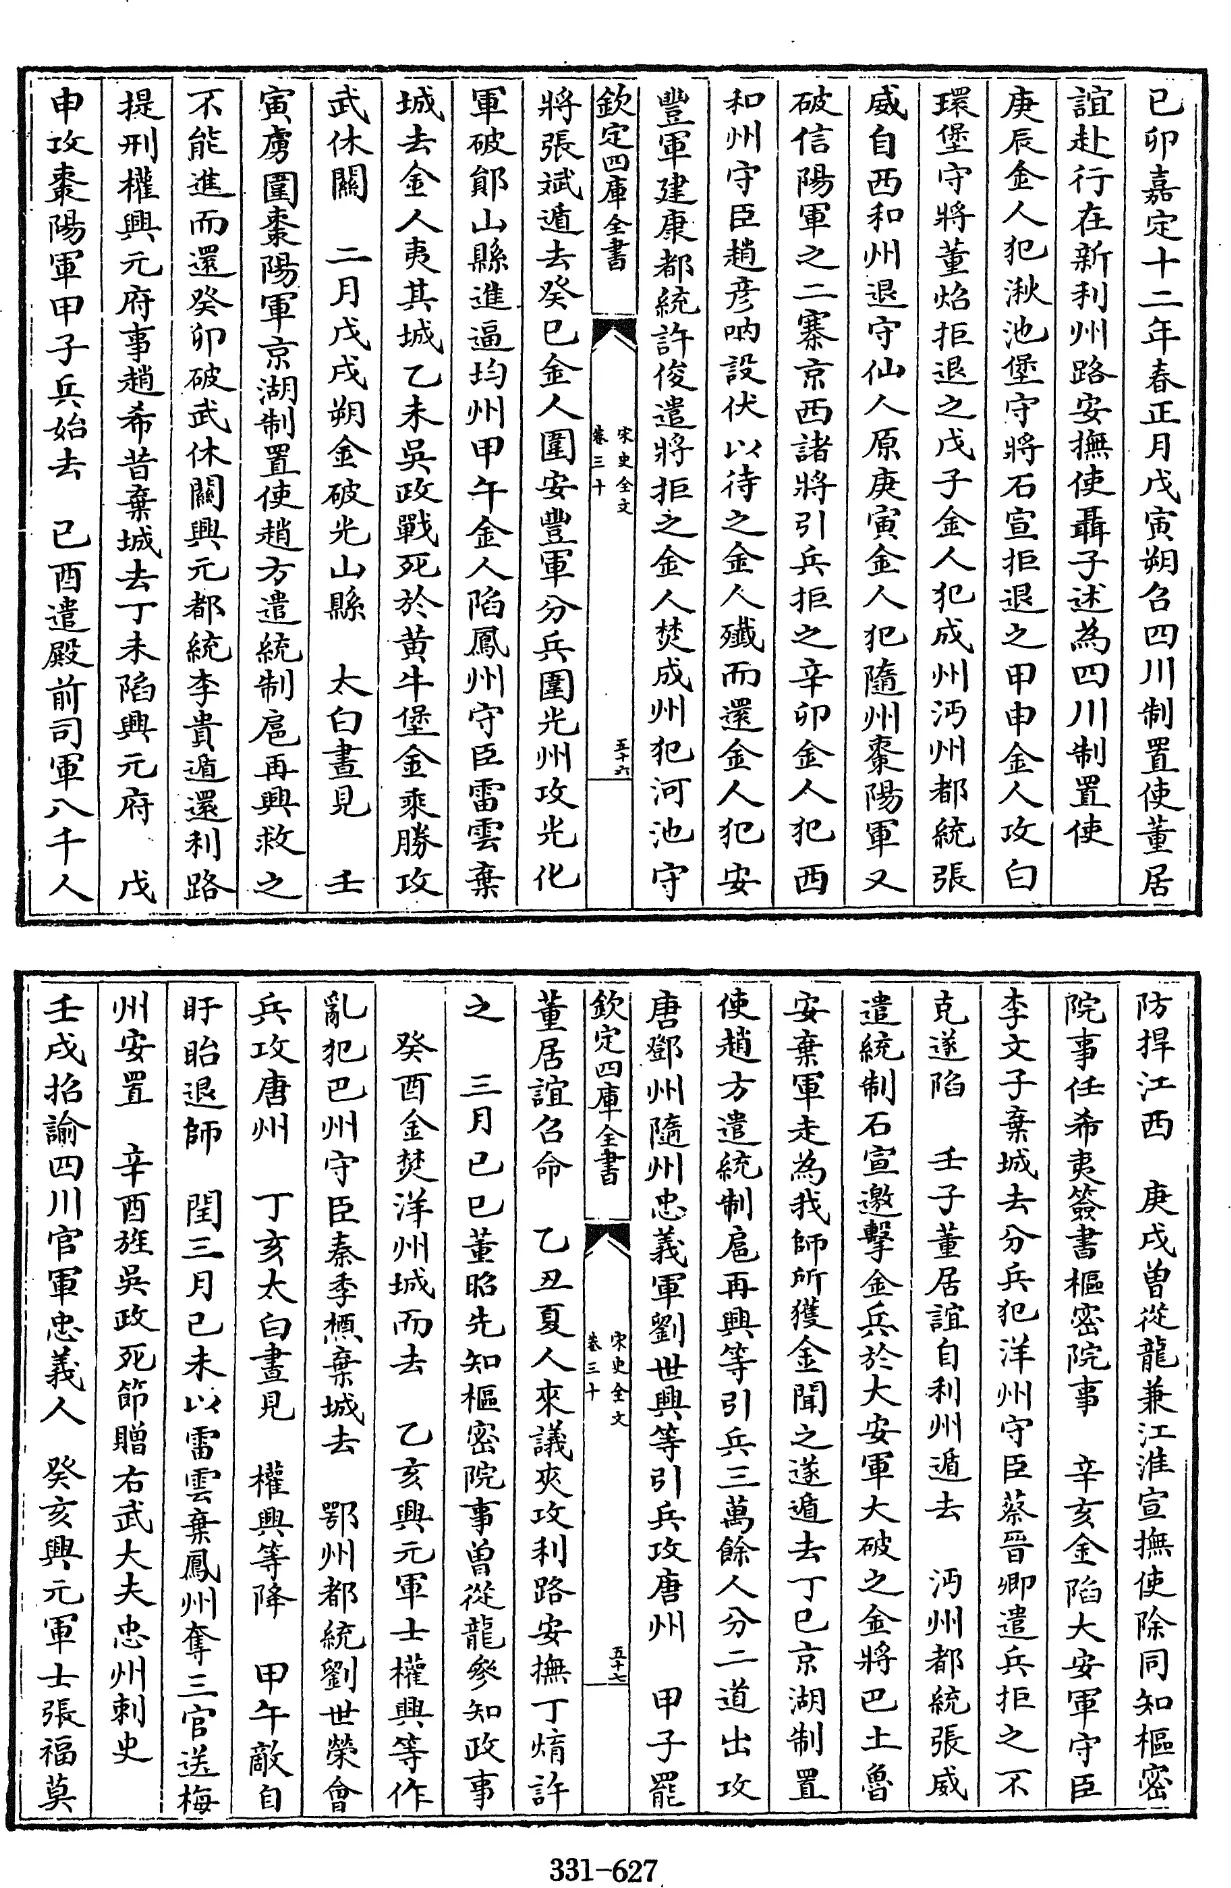 己卯嘉定十二年春正月戊寅朔召四川制置使董居
誼赴行在新利州路安撫使聶子述為四川制置使
庚辰金人犯湫池堡守將石宣拒退之甲申金人攻白
環堡守將董炤拒退之戊子金人犯成州沔州都統張
威自西和州退守仙人原庚寅金人犯隨州棗陽軍又
破信陽軍之二寨京西諸將引兵拒之辛卯金人犯西
和州守臣趙彦呐設伏以待之金人殲而還金人犯安
豐軍建康都統許俊遣將拒之金人焚成州犯河池守
欽定四庫全書
宋史全文
卷三十
五十六
將張斌遁去癸巳金人圍安豐軍分兵圍光州攻光化
軍破鄖山縣進逼均州甲午金人陷鳳州守臣雷雲棄
城去金人夷其城乙未吳政戰死於黄牛堡金乘勝攻
武休關 二月戊戌朔金破光山縣 太白晝見 壬
寅虜圍棗陽軍京湖制置使趙方遣統制扈再興救之
不能進而還癸卯破武休關興元都統李貴遁還利路
提刑權興元府事趙希昔棄城去丁未陷興元府 戊
申攻棗陽軍甲子兵始去 己酉遣殿前司軍八千人
防捍江西 庚戌曾從龍兼江淮宣撫使除同知樞密
院事任希夷簽書樞密院事 辛亥金陷大安軍守臣
李文子棄城去分兵犯洋州守臣蔡晉卿遣兵拒之不
克遂陷 壬子董居誼自利州遁去 沔州都統張威
遣統制石宣邀擊金兵於大安軍大破之金將巴土魯
安棄軍走為我師所獲金聞之遂遁去丁巳京湖制置
使趙方遣統制扈再興等引兵三萬餘人分二道出攻
唐鄧州隨州忠義軍劉世興等引兵攻唐州 甲子罷
欽定四庫全書
宋史全文
卷三十
五十七
董居誼召命 乙丑夏人來議夾攻利路安撫丁焴許
之 三月己巳董昭先知樞密院事曾從龍參知政事
癸酉金焚洋州城而去 乙亥興元軍士權興等作
亂犯巴州守臣秦季槱棄城去 鄂州都統劉世榮會
兵攻唐州 丁亥太白晝見 權興等降 甲午敵自
盱眙退師 閏三月己未以雷雲棄鳳州奪三官送梅
州安置 辛酉旌吳政死節贈右武大夫忠州刺史
壬戌招諭四川官軍忠義人 癸亥興元軍士張福莫
331-627